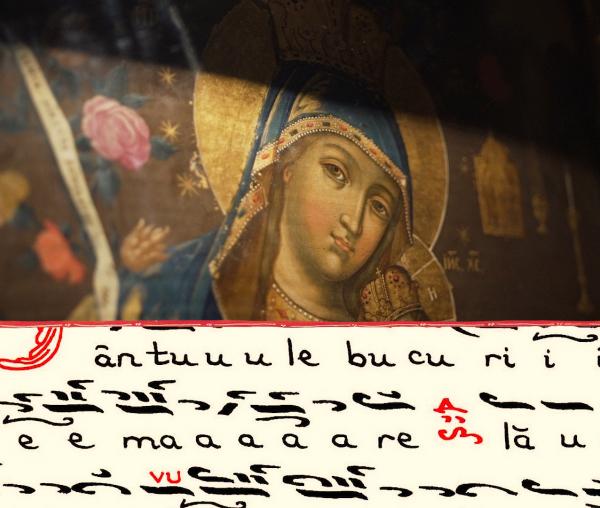 ІИС ХС
ântu u u u le bu cu ri i i
e e ma a a a a re lă u
VU